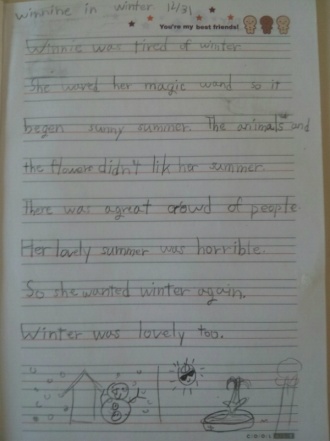 winnine in winter 12/31
You're my best friends!
Winnie was tired of winter.
She waved her magic wand so it
began sunny summer. The animals and
the flowers didn't lik her summer.
There was a great crowd of people.
Her lovely summer was horrible.
So she wanted winter again.
Winter was lovely too.